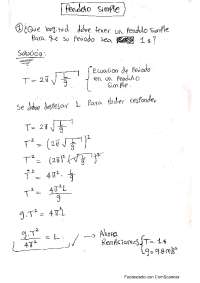 Pendulo Simple
① ¿Que longitud debe tener un Pendulo Simple
Para que su Periodo sea 1 s?
Solución:
T = 2π √(L/g)
Ecuacion de Periodo
en un Pendulo
Simple.
Se debe despejar L Para poder responder
T = 2π √(L/g)
T² = (2π √(L/g))²
T² = (2π)² (√(L/g))²
T² = 4π² · L/g
T² = 4π²L/g
g.T² = 4π²L
g.T²/4π² = L. → Ahora
T = 1 s
g = 9.8 m/s²
Escaneado con CamScanner